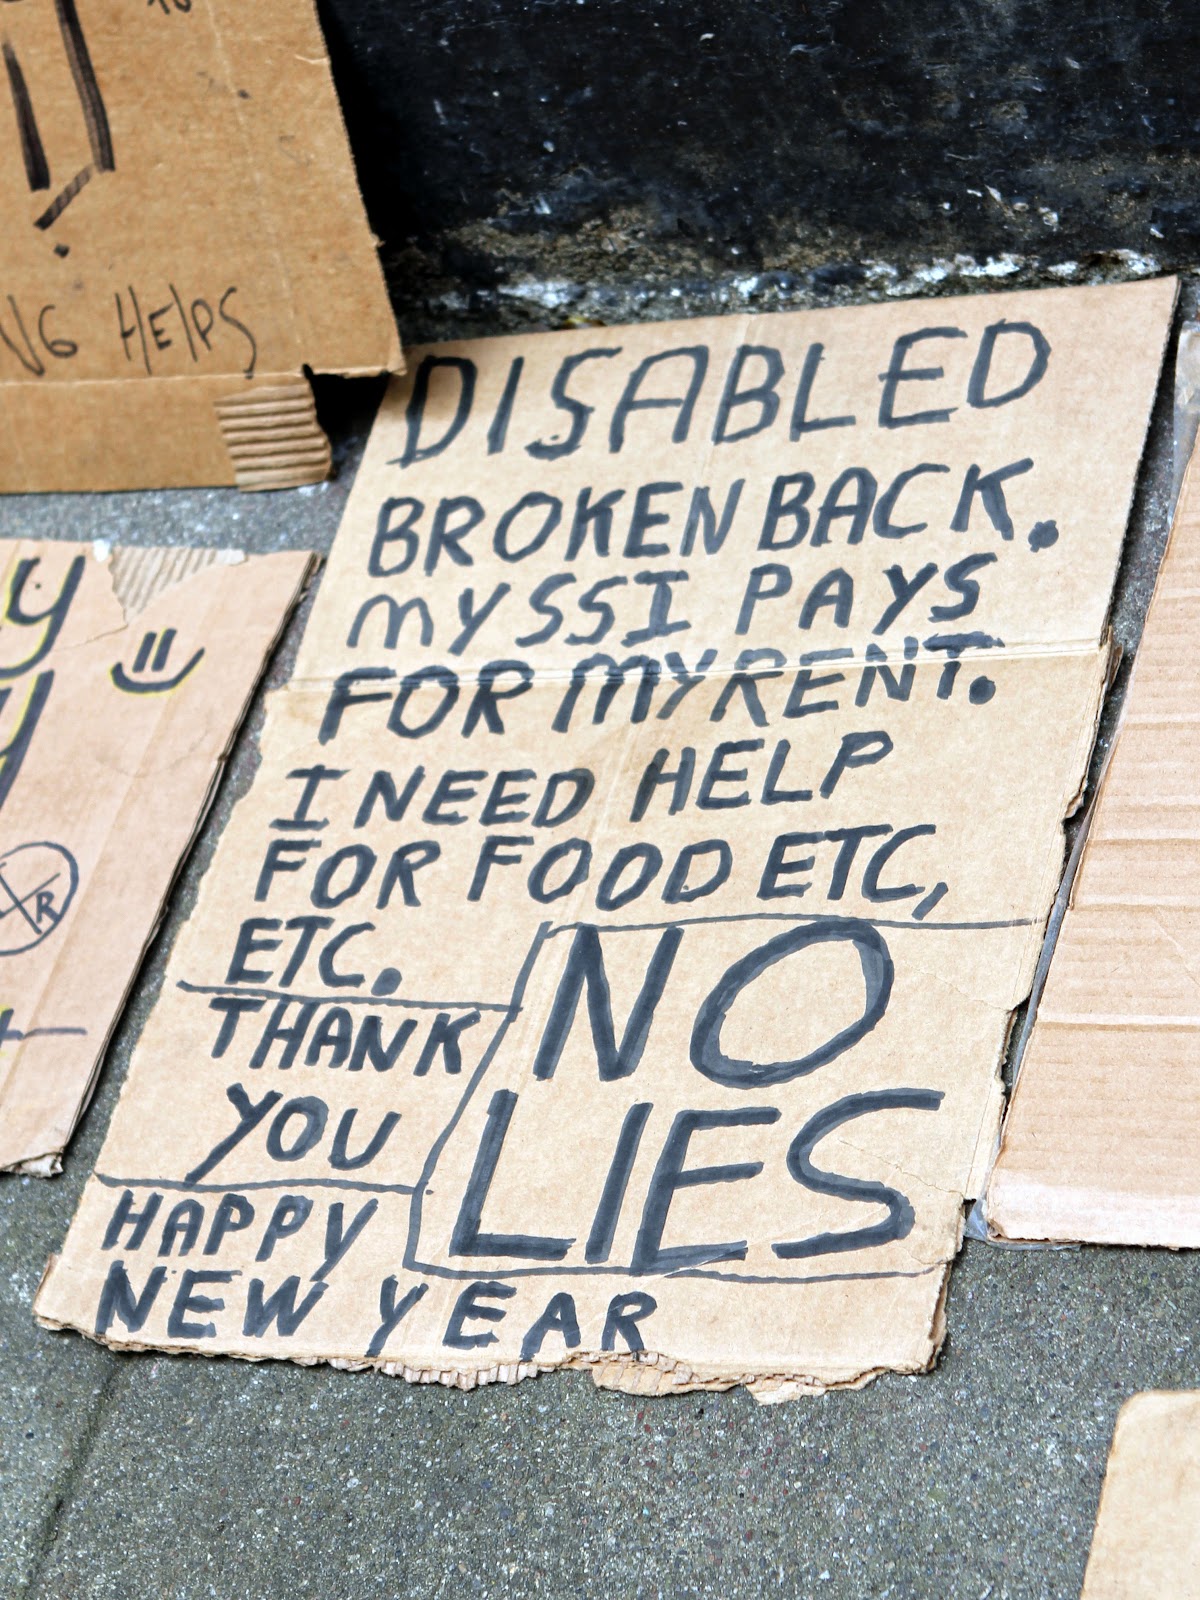 HELPS
DISABLED
BROKEN BACK.
MY SSI PAYS
FOR MY RENT.
I NEED HELP
FOR FOOD ETC,
ETC.
THANK
YOU
NO
LIES
HAPPY
NEW YEAR